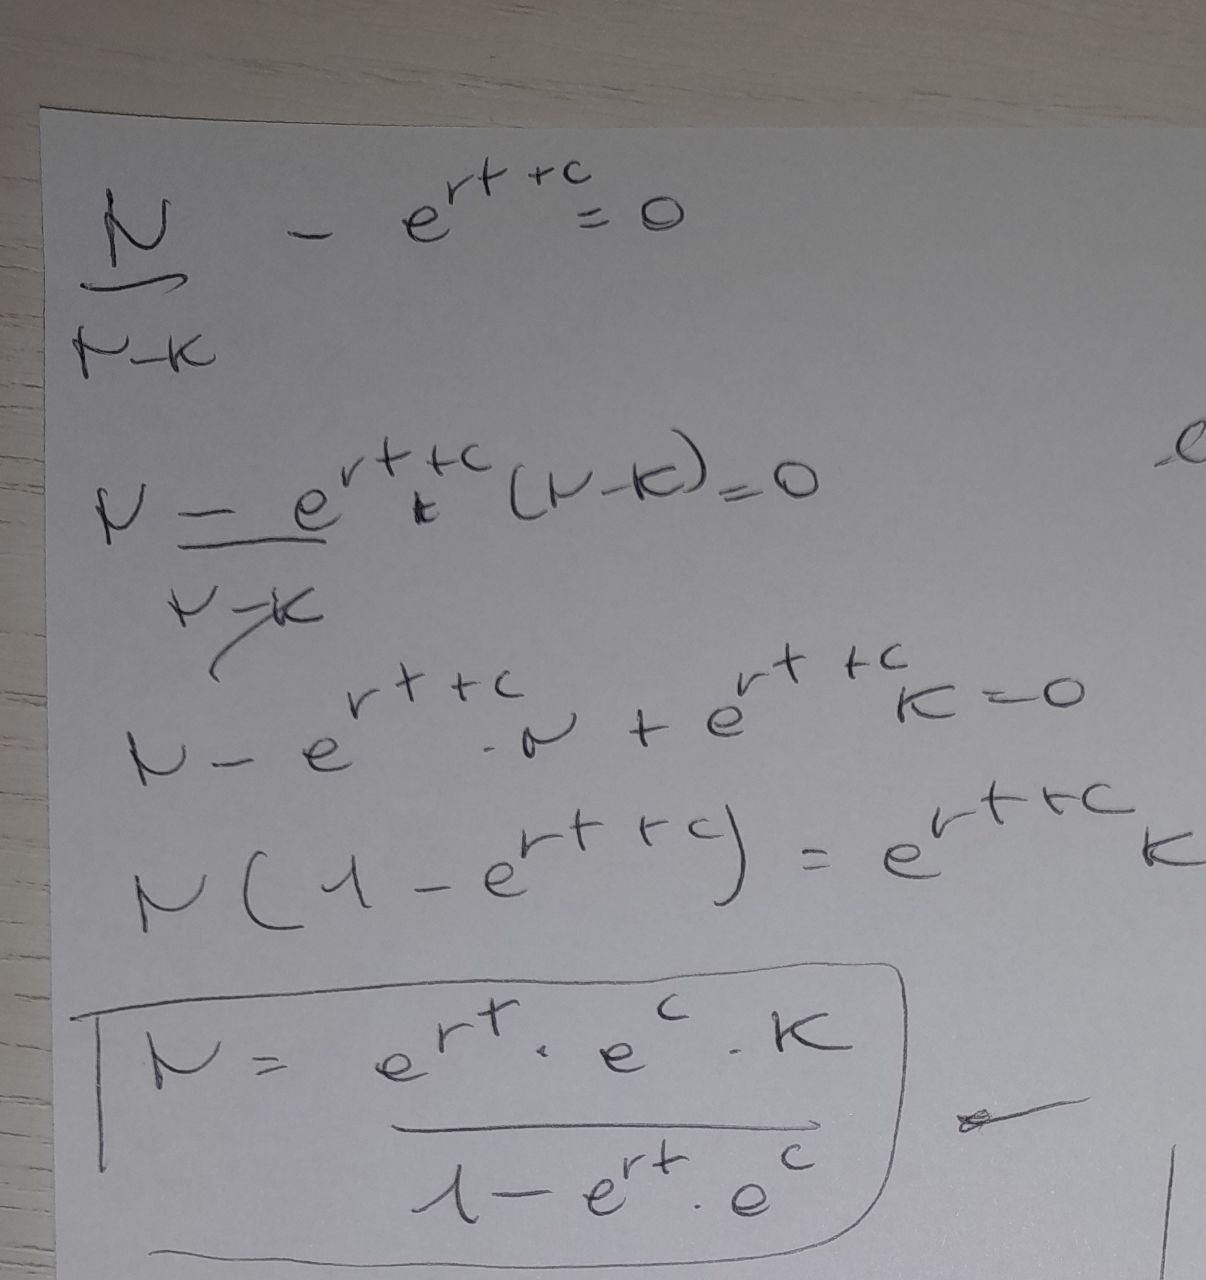 N/(N-K) - e^(rt+c) = 0
N - e^(rt+c) (N-K) = 0
N-K
N - e^(rt+c) · N + e^(rt+c) K = 0
N(1 - e^(rt+c)) = e^(rt+c) K
N = (e^(rt) · e^c · K)/(1 - e^(rt) · e^c)